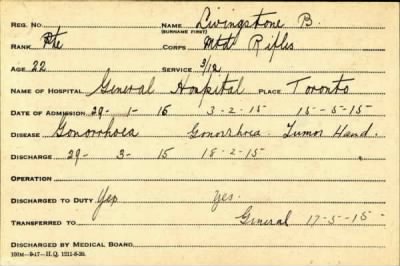 REG. NO. NAME Livingstone B.
(SURNAME FIRST)
RANK Pte CORPS Mtd Rifles
AGE 22 SERVICE 3/12
NAME OF HOSPITAL General Hospital PLACE Toronto
DATE OF ADMISSION 29- 1- 15 3-2-15 15-5-15
DISEASE Gonorrhoea Gonorrhoea. Tumor Hand.
DISCHARGE 29- 3- 15 18-2-15
OPERATION
DISCHARGED TO DUTY Yes Yes.
TRANSFERRED TO General 17-5-15-
DISCHARGED BY MEDICAL BOARD
100M-9-17-H.Q. 1211-8-30.